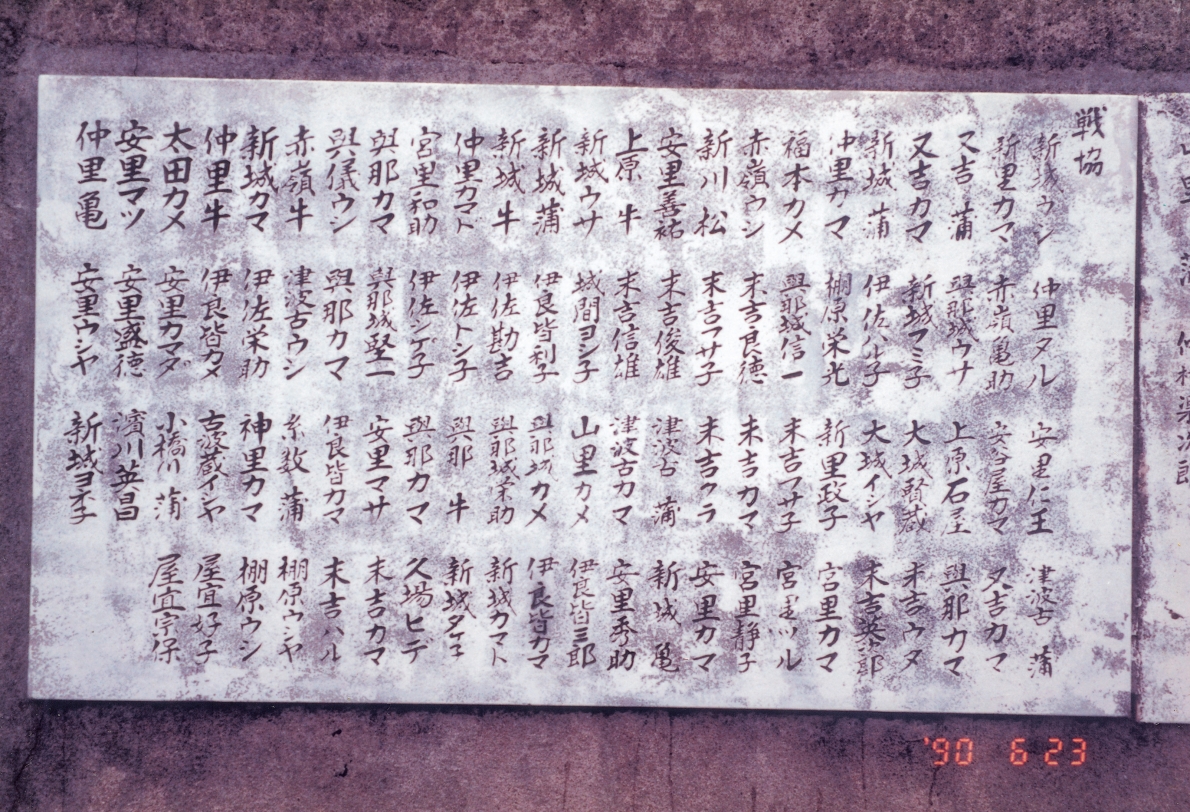 戦協
新城ウシ 仲里タル 安里仁王 津波古 蒲
新里カマ 赤嶺亀助 安谷屋カマ 又吉カマ
又吉 蒲 與那城ウサ 上原石 與那カマ
又吉カマ 新城マミ子 大城賢蔵 末吉ウタ
新城 蒲 伊佐ハル子 大城イシヤ 末吉英三郎
仲里カマ 棚原栄光 新里政子 宮里カマ
福本カメ 與那城信一 末吉マサ子 宮里ツル
赤嶺ウシ 末吉良徳 末吉カマ 宮里静子
新川 松 末吉フサ子 末吉クラ 安里カマ
安里善祐 末吉俊雄 津波古 蒲 新城 亀
上原 牛 末吉信雄 津波古カマ 安里秀助
新城ウサ 城間ヨシ子 山里カメ 伊良皆三郎
新城 蒲 伊良皆利子 與那城カメ 伊良皆カマ
新城 牛 伊佐勘吉 與那城栄助 新城カマト
仲里カマド 伊佐トシ子 與那 牛 新城タケ子
宮里和助 伊佐シゲ子 與那カマ 久場ヒデ
與那カマ 與那城堅一 安里マサ 末吉カマ
與儀ウシ 與那カマ 伊良皆カマ 末吉ハル
赤嶺 牛 津波古ウシ 糸数 蒲 棚原ウシヤ
新城カマ 伊佐栄助 神里カマ 棚原ウシ
仲里 牛 伊良皆カメ 古波蔵イシヤ 屋宜好子
太田カメ 安里カマダ 小橋川 蒲 屋宜宇保
安里マツ 安里盛徳 濱川英昌
仲里亀 安里ウシヤ 新城ヨネ子
'90 6 23